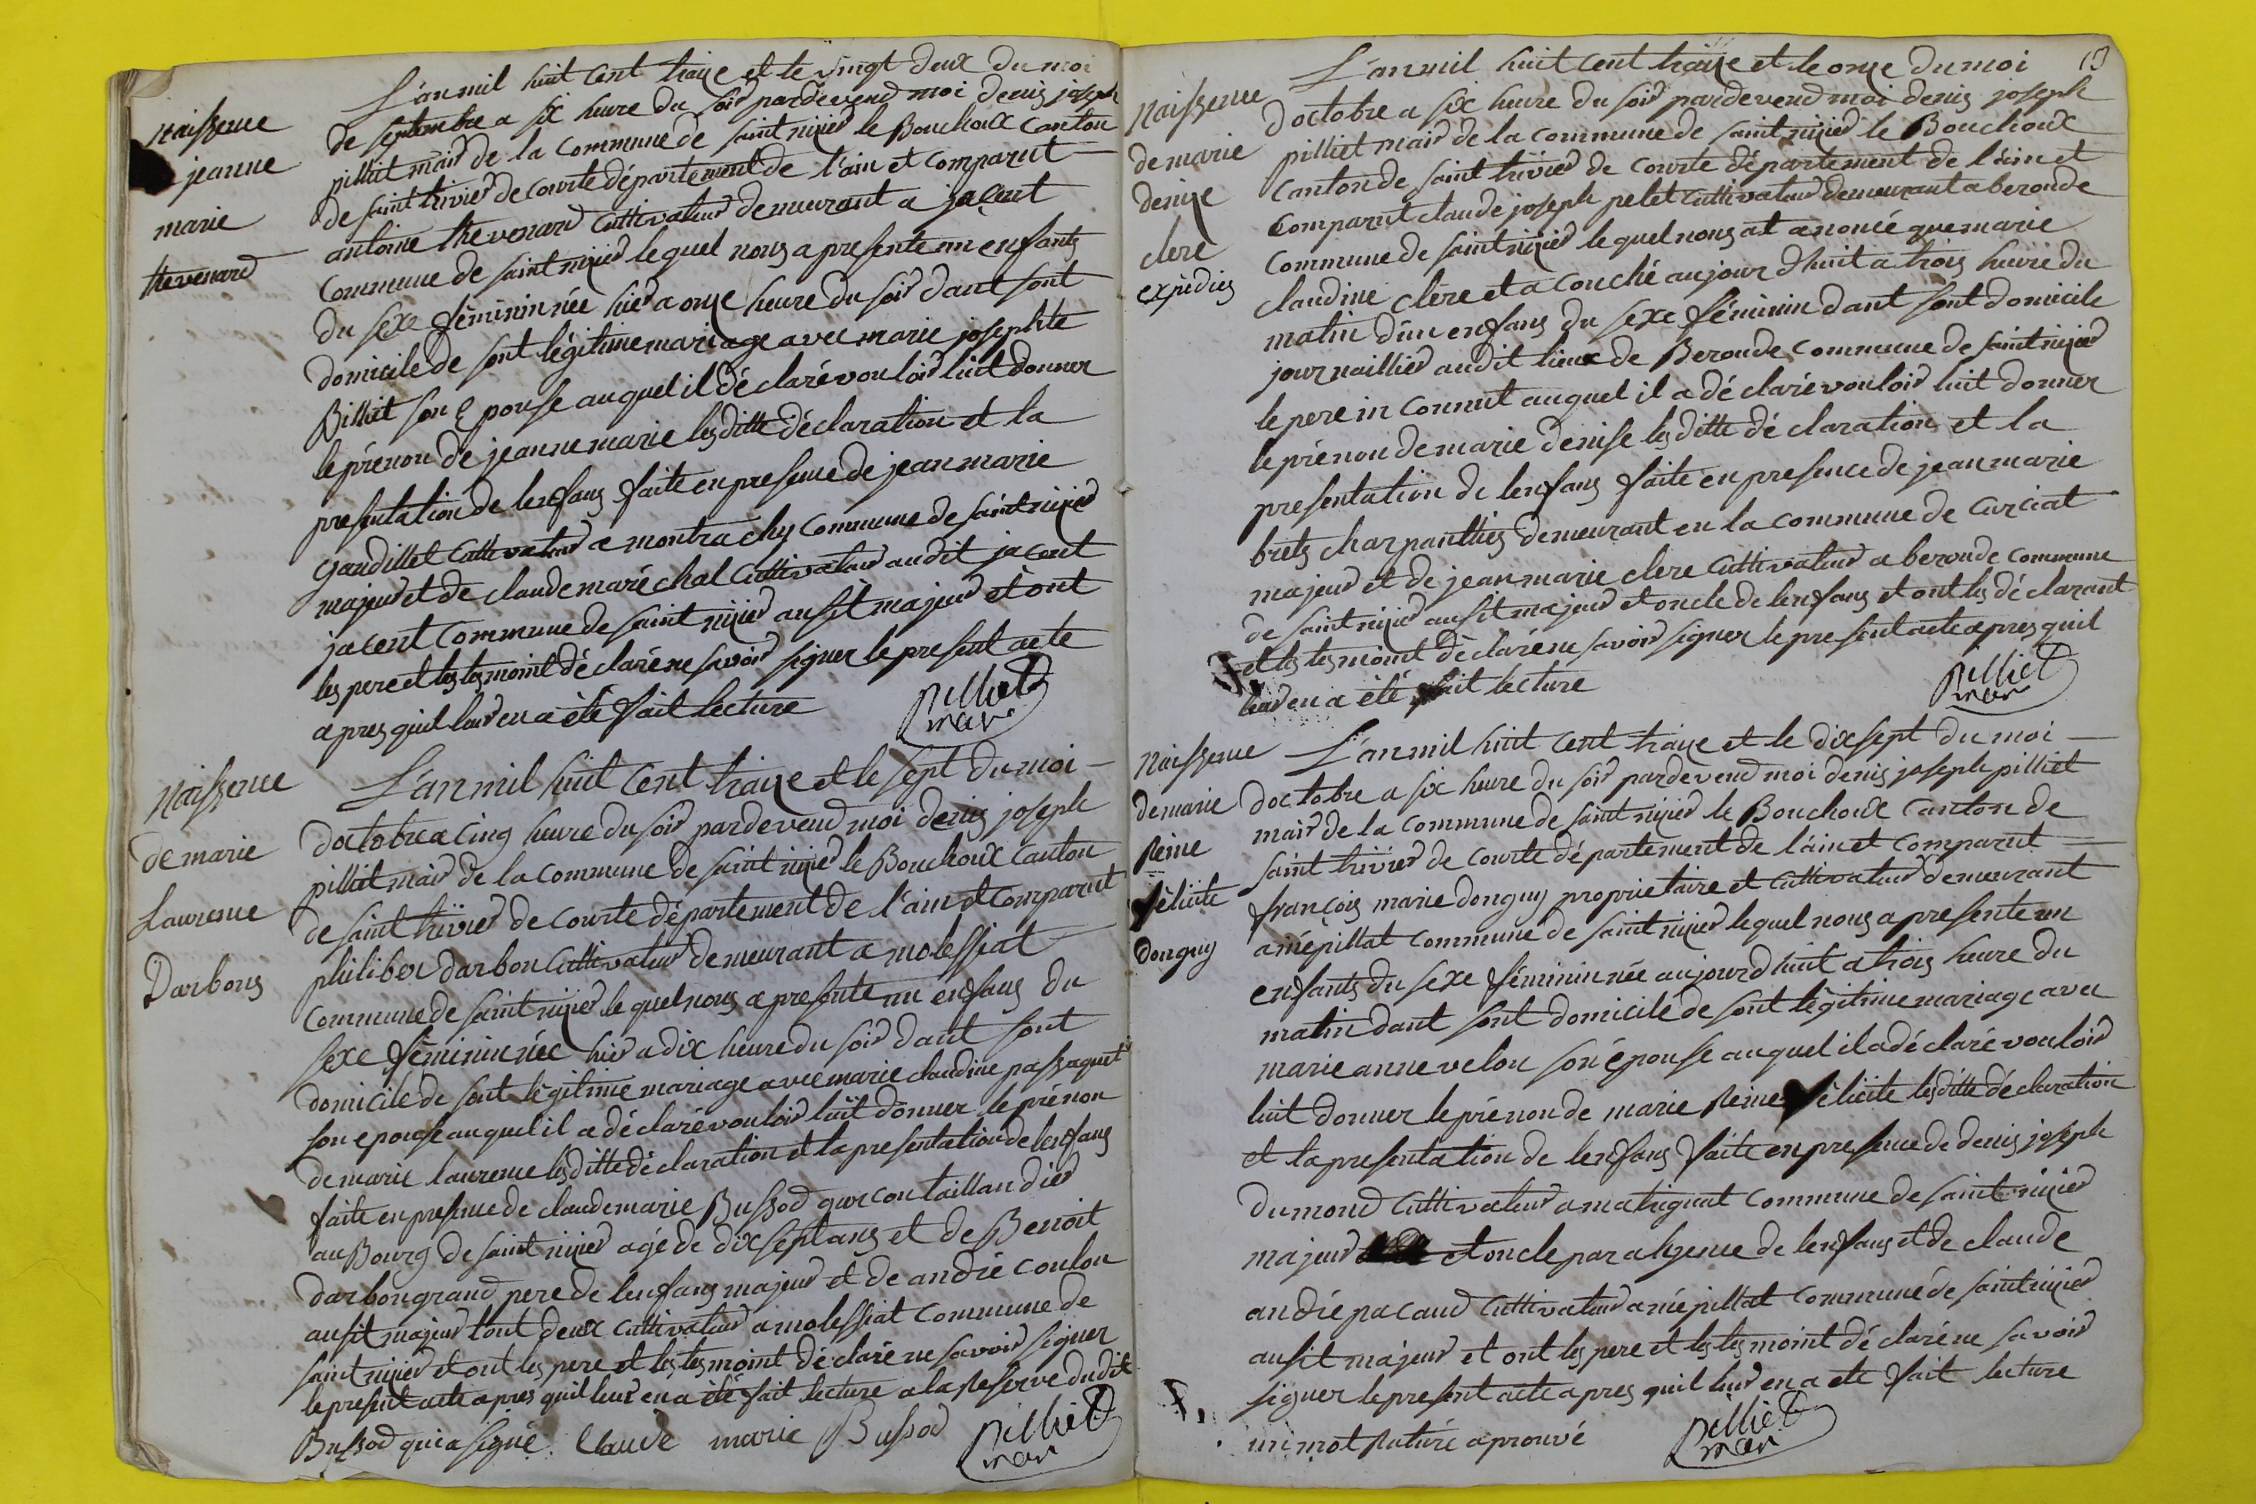 naissence
jeanne
marie
thevenard
L'an mil huit cent traize et le vingt deux du moi
de septembre a six heure du soir pardevend moi denis joseph
pilliet mair de la commune de saint nizier le Bouchoux canton
de saint trivier de courte département de l'ain et comparut
antoine thevenard cultivateur demeurant a jacent
commune de saint nizier lequel nous a presente un enfants
du sexe féminin née hier a onze heure du soir dant sont
domicile de sont légitime mariage avec marie josephte
Billiet son épouse auquel il déclaré vouloir luit donner
le prénon de jeanne marie lesditte déclaration et la
presentation de lenfans faite en presence de jean marie
gaudillet cultivateur a montrachy commune de saint nizier
majeur et de claude maréchal cultivateur audit jacent
jacent commune de saint nizier ausit majeur et ont
les pere et les tesmoint déclaré ne savoir signer le present acte
apres quil leur en a été fait lecture
Pilliet
mair
Naissence
de marie
Laurence
Darbons
L'an mil huit cent traize et le sept du moi
doctobre a cinq heure du soir pardevend moi denis joseph
pilliet mair de la commune de saint nizier le Bouchoux canton
de saint trivier de courte département de l'ain et comparut
philiber darbon cultivateur demeurant a molessiat
commune de saint nizier lequel nous a presente un enfans du
sexe féminin née hier a dix heure du soir dant sont
domicile de sont légitime mariage avec marie claudine passaquet
son epouse auquel il a déclaré vouloir luit donner le prénon
de marie laurence lesditte déclaration et la presentation de lenfans
faite en presence de claude marie Bussod garcon taillandier
au Bourg de saint nizier agé de dix sept ans et de Benoit
darbon grand pere de lenfans majeur et de andré coulon
ausit majeur tout deux cultivateur a molessiat commune de
saint nizier et ont les pere et les tesmoint déclaré ne savoir signer
le present acte apres quil leur en a été fait lecture a la Reserve dudit
Bussod qui a signé. Claude marie Bussod
Pilliet
mair
naissence
de marie
denize
clere
expédiés
L'an mil huit cent traize et le onze du moi
doctobre a six heure du soir pardevend moi denis joseph
pilliet mair de la commune de saint nizier le Bouchoux
canton de saint trivier de courte département de l'ain et
comparut claude joseph pelet cultivateur demeurant a beronde
commune de saint nizier lequel nous at anoncé que marie
claudine clere et a couché aujourdhuit a trois heure du
matin d'un enfans du sexe féminin dant sont domicile
journaillier audit lieux de Beronde commune de saint nizier
le pere in connut auquel il a déclaré vouloir luit donner
le prénon de marie denise lesditte déclaration et la
presentation de lenfans faite en presence de jean marie
brets charpanthies demeurant en la commune de curciat
majeur et de jean marie clere cultivateur a beronde commune
de saint nizier ausit majeur et oncle de lenfans et ont les déclarant
et les tesmoint déclaré ne savoir signer le present acte apres quil
leur en a été fait lecture
Pilliet
mair
naissence
de marie
Reine
félicite
donguy
L'an mil huit cent traize et le dix sept du moi
doctobre a six heure du soir pardevend moi denis joseph pilliet
mair de la commune de saint nizier le Bouchoux canton de
saint trivier de courte département de l'ain et comparut
françois marie donguy proprietaire et cultivateur demeurant
a mépillat commune de saint nizier lequel nous a presente un
enfants du sexe féminin née aujourdhuit a trois heure du
matin dant sont domicile de sont légitime mariage avec
marie anne velon son épouse auquel il a déclaré vouloir
luit donner le prénon de marie Reine félicite lesditte déclaration
et la presentation de lenfans faite en presence de denis joseph
dumond cultivateur a matignat commune de saint nizier
majeur et oncle par alyence de lenfans et de claude
andré pacaud cultivateur a mépillat commune de saint nizier
ausit majeur et ont les pere et les tesmoint déclaré ne savoir
signer le present acte apres quil leur en a ete fait lecture
un mot Raturé aprouvé
Pilliet
mair